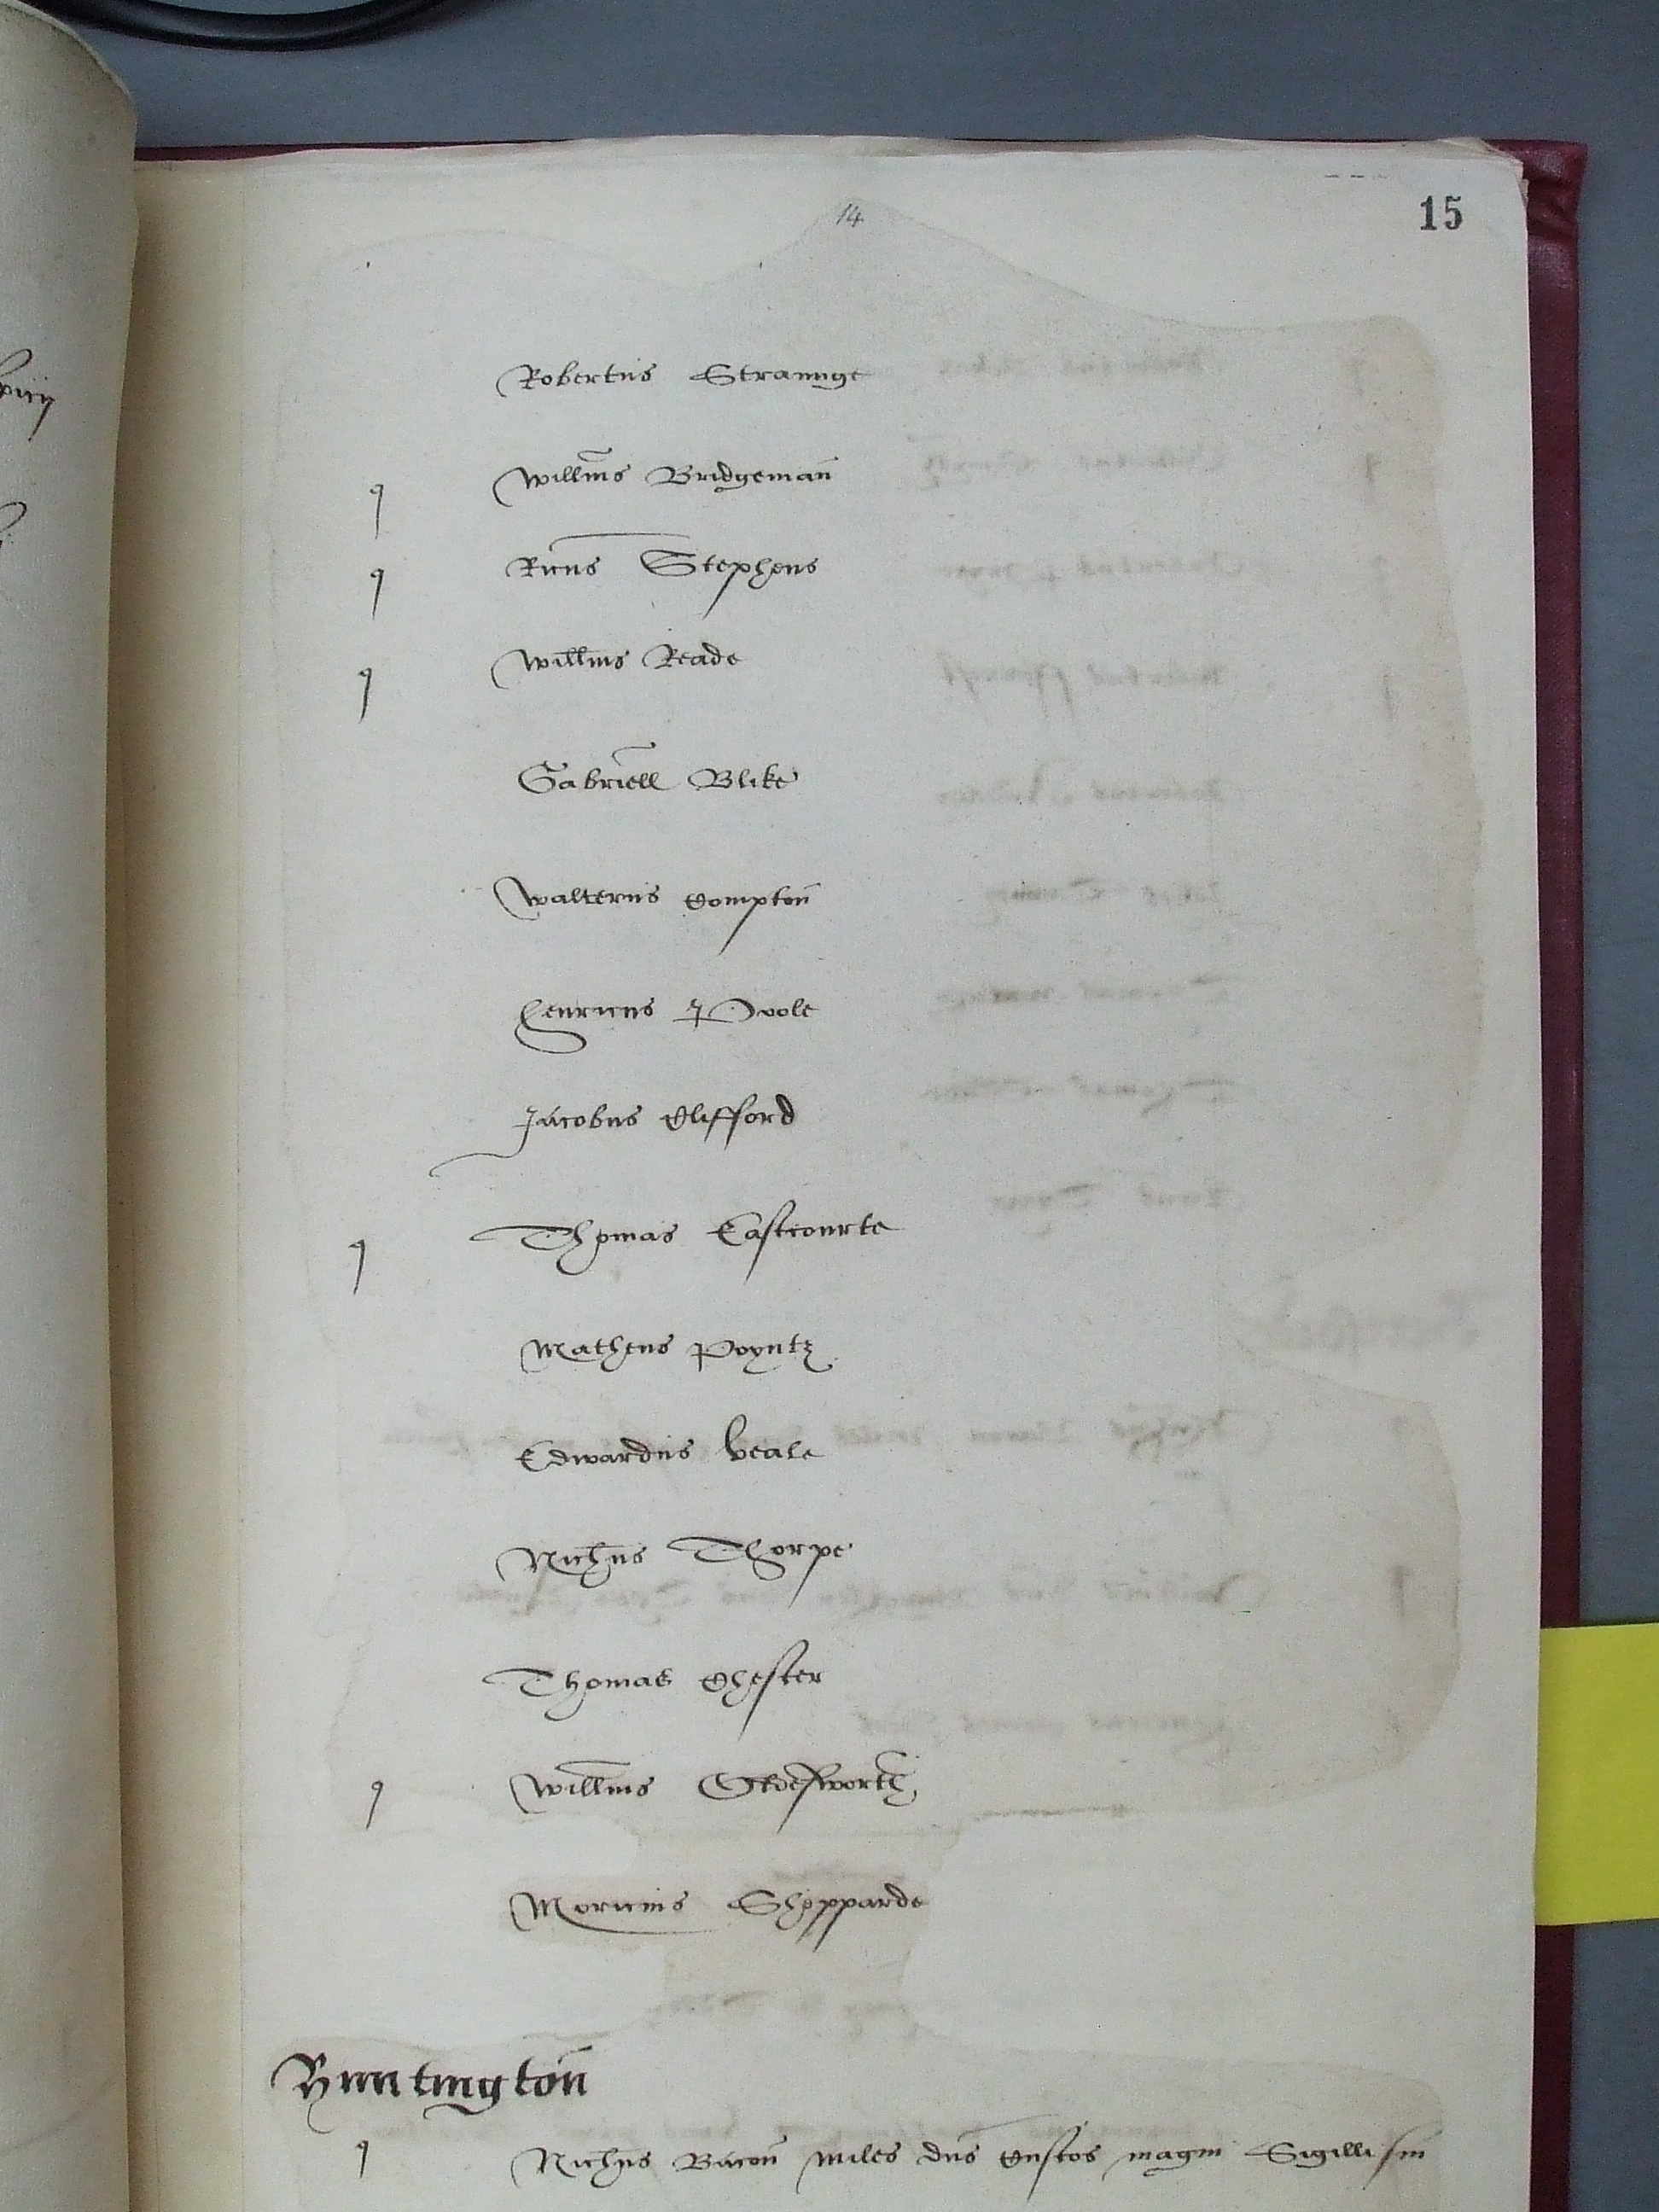 14
15
Robertus Straunge
q Willms Bridgeman
q Ricus Stephens
q Willms Reade
Gabriell Blike
Walterus Compton
Henricus Poole
Jacobus Clifford
q Thomas Eastcourte
Matheus Poyntz
Edwardus Veale
Nichus Thorpe
Thomas Chester
q Willms
Moricius Shepparde
Huntington
q Nichus Bacon miles dns Custos magni Sigilli